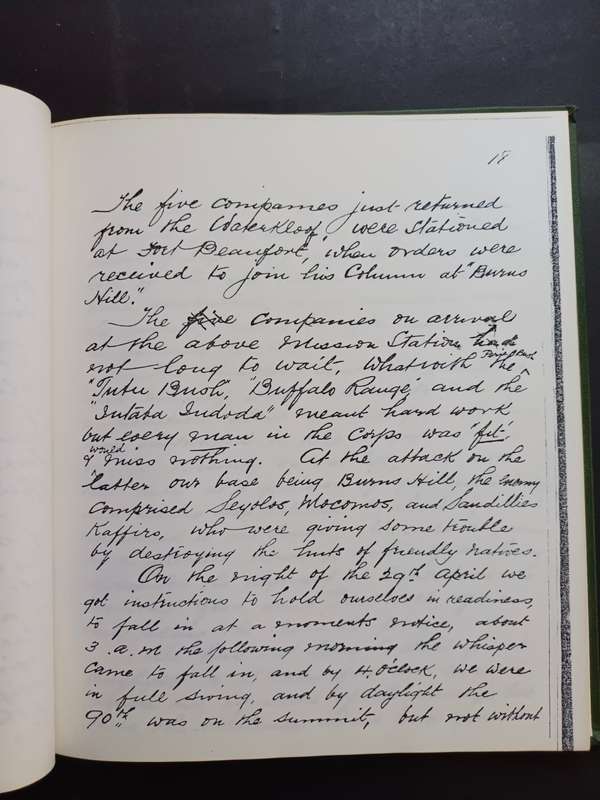 18
The five companies just returned
from the Waterkloof, were stationed
at Fort Beaufort, when orders were
received to join his Column at "Burns
Hill."
The five companies on arrival
at the above Mission Station had
not long to wait, what with the
"Tutu Bush", "Buffalo Range", and the
"Intata Indoda" meant hard work
but every man in the Corps was 'fit',
would
& miss nothing. At the attack on the
latter our base being Burns Hill, the Enemy
comprised Seyolos, Mocomos, and Sandillies
Kaffirs, who were giving some trouble
by destroying the huts of friendly natives.
On the night of the 29th April we
got instructions to hold ourselves in readiness,
to fall in at a moments notice, about
3 .a.m the following morning the whisper
came to fall in, and by 4.o'clock, we were
in full swing, and by daylight the
90th was on the summit, but not without